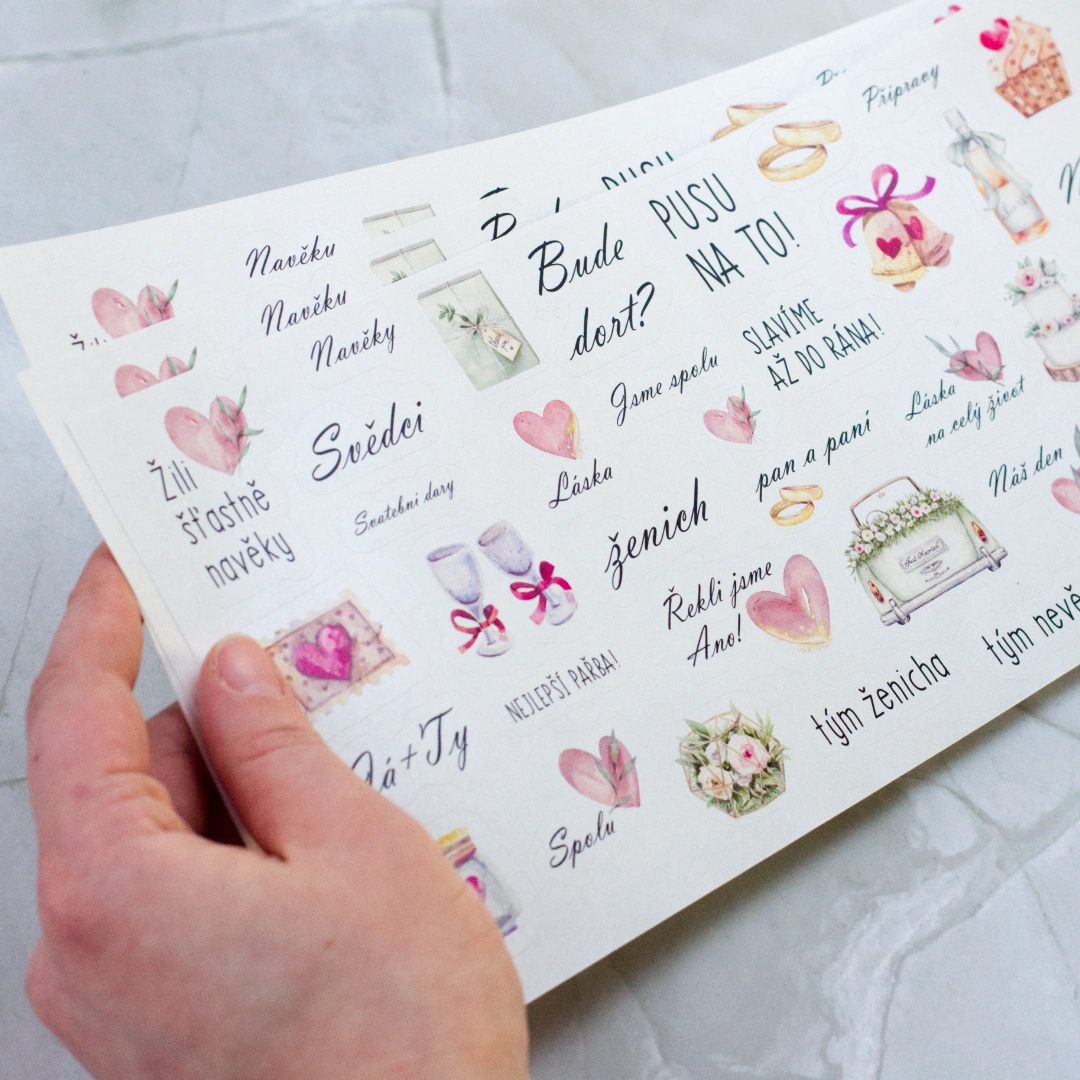 Navěku
Navěku
Navěky
Bude
dort?
PUSU
NA TO!
Přípravy
Žili
šťastně
navěky
Svědci
Svatební dary
Jsme spolu
SLAVÍME
AŽ DO RÁNA!
Láska
na celý život
Láska
pan a paní
Náš den
ženich
Řekli jsme
Ano!
Just Married
NEJLEPŠÍ PAŘBA!
Já+Ty
Spolu
tým ženicha
tým